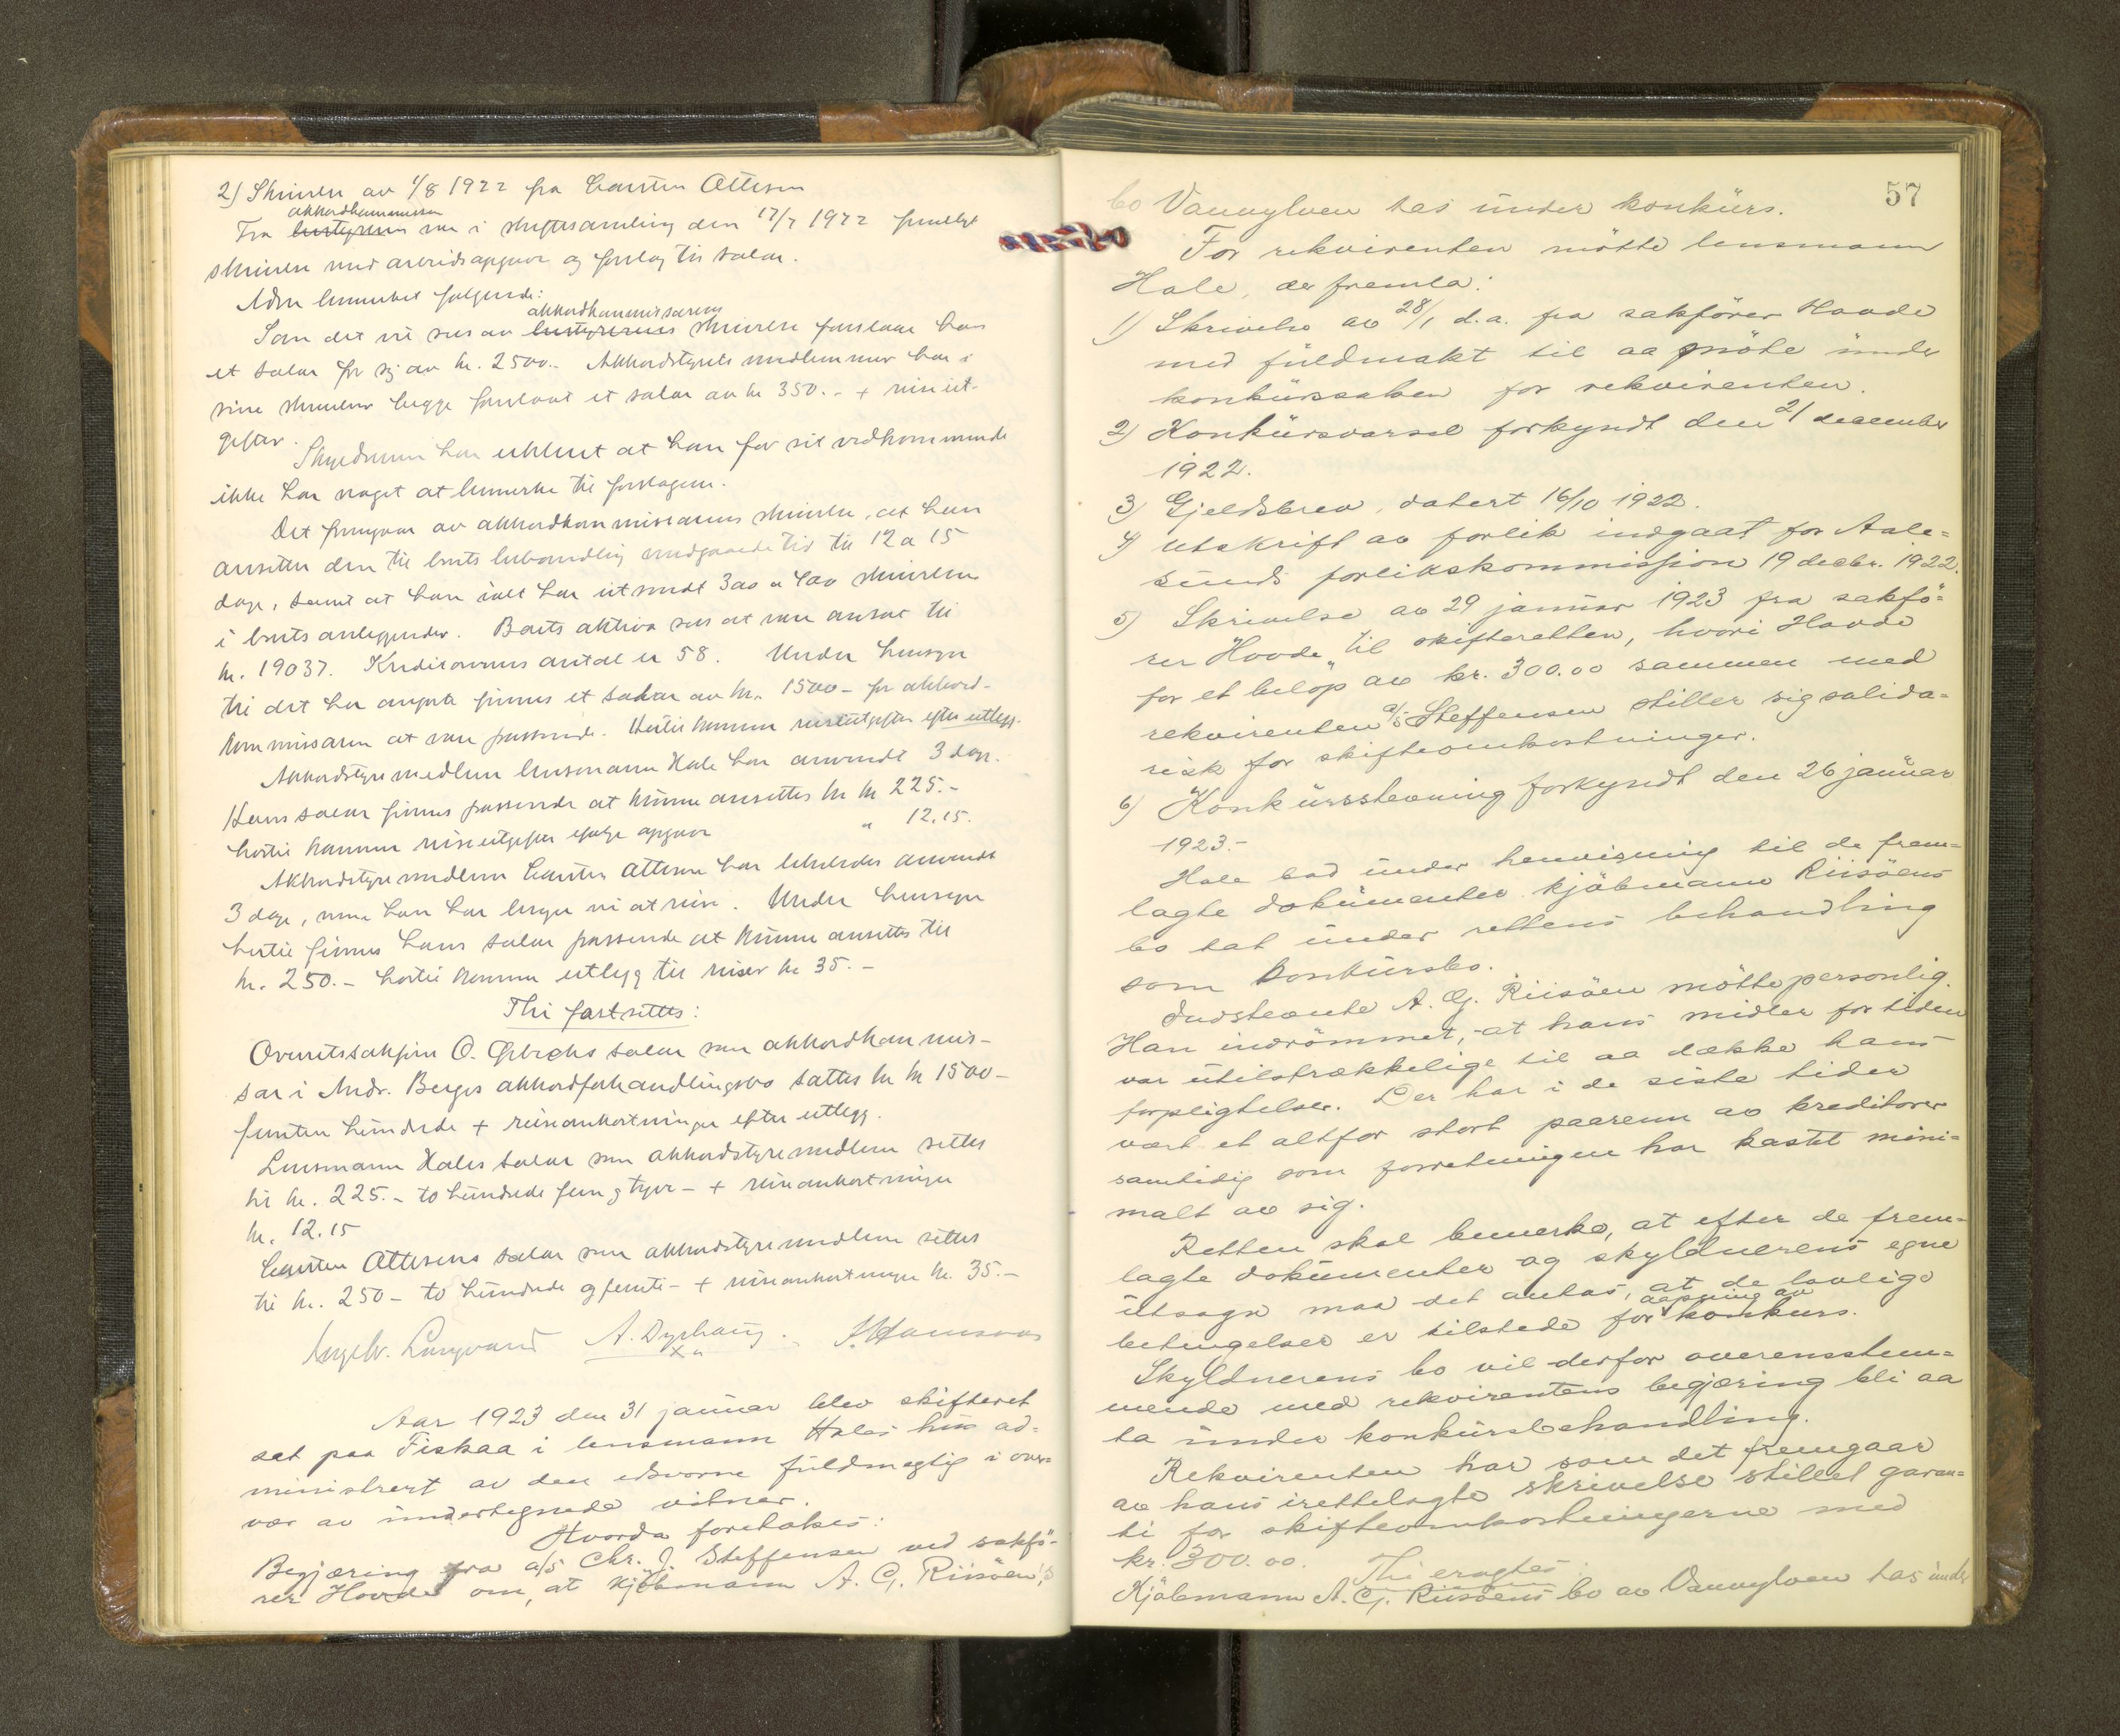 2) Skrivelse av 1/8 1922 fra Carsten Ottesen
akkordkommissæren
Fra bustyreren var i skiftesamling den 17/7 1922 fremlagt
skrivelse med arbeidsopgave og forslag til salær.
Adm bemerket følgende:
akkordkommissærens
Som det vil sees av bustyrerens skrivelse foreslaar han
et salær for sig av kr. 2500.- Akkordstyrets medlemmer har i
sine skrivelser begge foreslaat et salær av kr 350.- + reiseut-
gifter.
Skyldneren har uttalt at han for sit vedkommende
ikke har noget at bemerke til forslagene.
Det fremgaar av akkordkommissærens skrivelse, at han
ansetter den til boets behandling medgaaede tid til 12 a 15
dage, samt at han ialt har utsendt 300 a 400 skrivelser
i boets anliggender. Boets aktiva sees at være ansat til
kr. 19037. Kreditorernes antal er 58. Under hensyn
til det her anførte finnes et salær av kr. 1500- for akkord-
kommissæren at være passende. Hertil kommer reiseutgifter efter utlegg.
Akkordstyremedlem lensmann Hale har anvendt 3 dage.
Hans salær finnes passende at kunne ansettes til kr 225.-
hertil kommer reiseutgifter ifølge opgave " 12.15.
Akkordstyremedlem Carsten Ottesen har likeledes anvendt
3 dage, men han har lengre vei at reise. Under hensyn
hertil finnes hans salær passende at kunne ansettes til
kr. 250.- hertil kommer utlegg til reiser kr 35.-
Thi fastsettes:
Overretssakfører O. Gjerdes salær som akkordkommis-
sær i Andr. Berges akkordforhandlingsbo sættes til kr 1500-
femten hundrede + reiseomkostninger efter utlegg.
Lensmann Hales salær som akkordstyremedlem settes
til kr. 225.- to hundrede fem og tyve - + reiseomkostninger
kr. 12.15
Carsten Ottesens salær som akkordstyremedlem settes
til kr. 250- to hundrede og femti - + reiseomkostninger kr. 35.-
Ingebr. Langvand A. Dyshaug. J. Hamsaas
Aar 1923 den 31 januar blev skifteret
sat paa Fiskaa i lensmann Hales hus ad-
ministrert av den edsvorne fuldmegtig i over-
vær av undertegnede vitner.
Hvorda foretokes:
Begjæring fra a/s Chr. J. Steffensen ved sakfö-
rer Hovde om, at kjöbmann A. G. Riisöen's
57
bo Vannylven tas under konkurs.
For rekvirenten mötte lensmann
Hale, der fremla:
1) Skrivelse av 28/1 d.a. fra sakförer Hovde
med fuldmakt til aa möte under
konkurssaken for rekvirenten.
2) Konkursvarsel forkyndt den 21 december
1922.
3) Gjeldsbrev, datert 16/10 1922.
4) Utskrift av forlik indgaat for Aale-
sunds forlikskommission 19 decbr. 1922.
5) Skrivelse av 29 januar 1923 fra sakfö-
rer Hovde til skifteretten, hvori Hovde
for et belöp av kr. 300.00 sammen med
rekvirenten a/s Steffensen stiller sig solida-
risk for skifteomkostninger.
6) Konkursstevning forkyndt den 26 januar
1923.-
Hale bad under henvisning til de frem-
lagte dokumenter kjöbmann Riisöens
bo tat under rettens behandling
som konkursbo.
Indstevnte A. G. Riisöen mötte personlig.
Han indrömmet, at hans midler for tiden
var utilstrækkelige til aa dække hans
forpligtelser. Der har i de siste tider
vært et altfor stort paarenn av kreditorer
samtidig som forretningen har kastet mini-
malt av sig.
Retten skal bemerke, at efter de frem-
lagte dokumenter og skyldnerens egne
utsagn maa det antas, at de lovlige
aapning av
betingelser er tilstede for konkurs.
Skyldnerens bo vil derfor overensstem-
mende med rekvirentens begjæring bli aa
ta under konkursbehandling.
Rekvirenten har som det fremgaar
av hans irettelagte skrivelse stillet garan-
ti for skifteomkostningerne med
kr. 300.00.
Thi eragtes:
Kjöbmann A. G. Riisöens bo av Vannylven tas under